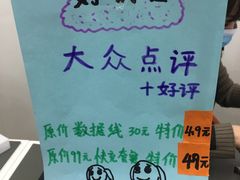 大众点评
+好评
原价 数据线 30元 特价 4.9元
原价99元 快充套餐 特价 49元